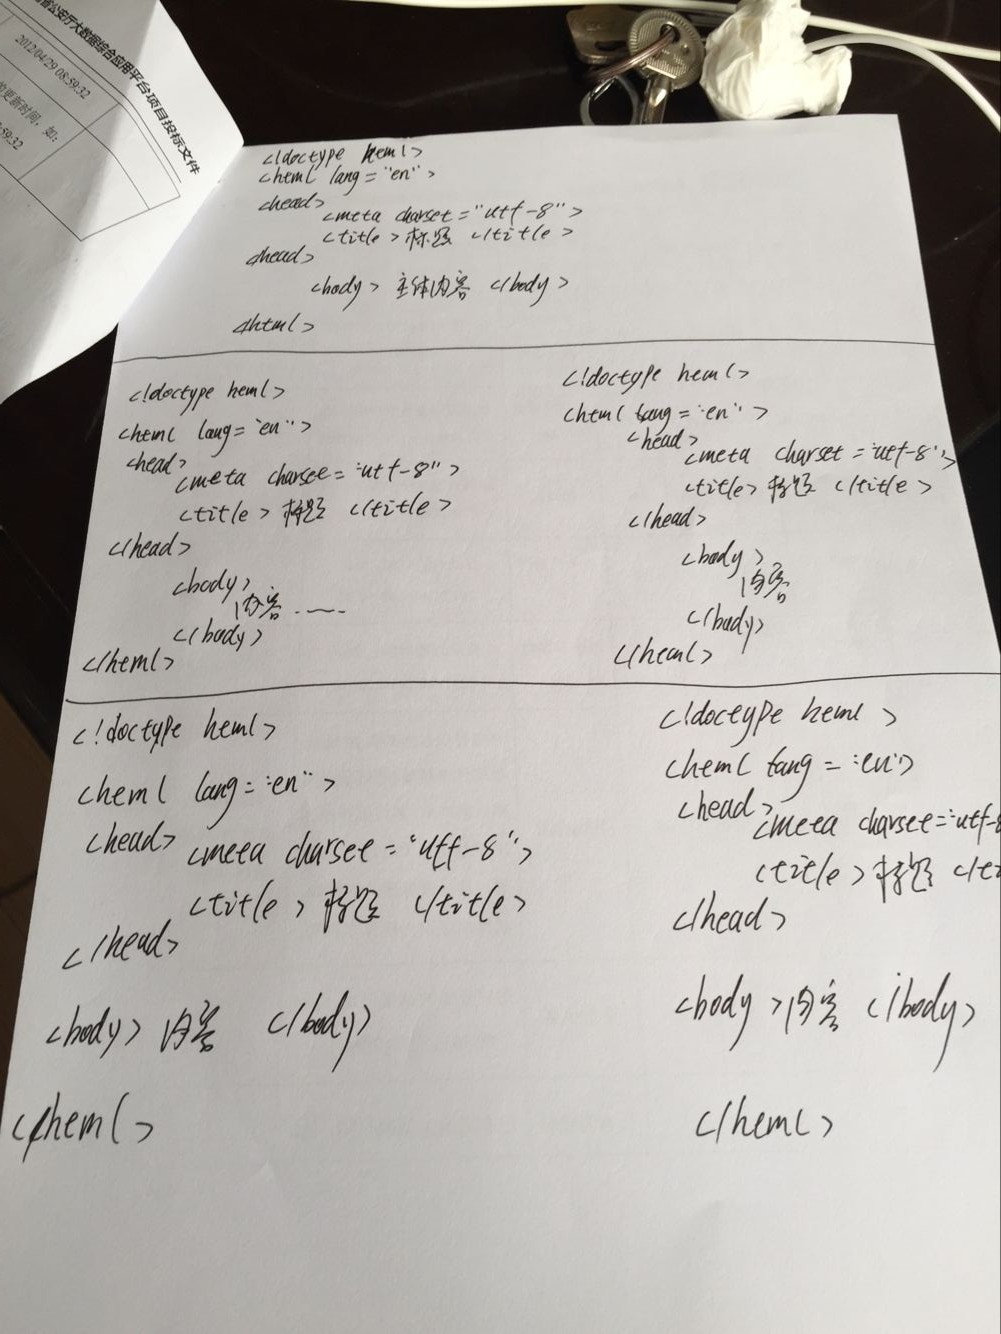 省公安厅大数据综合应用平台项目投标文件
2012/04/29 08:59:32
的更新时间，如：
:59:32
<!doctype html>
<html lang="en">
<head>
<meta charset="utf-8">
<title>标题 </title>
</head>
<body> 主体内容 </body>
</html>
<!doctype html>
<html lang="en">
<head>
<meta charset="utf-8">
<title> 标题 </title>
</head>
<body>
内容……
</body>
</html>
<!doctype html>
<html lang="en">
<head>
<meta charset="utf-8">
<title> 标题 </title>
</head>
<body>
内容
</body>
</html>
<!doctype html>
<html lang="en">
<head> <meta charset="utf-8">
<title> 标题 </title>
</head>
<body> 内容 </body>
</html>
<!doctype html>
<html lang="en">
<head>
<meta charset="utf-8
<title> 标题 </ti
</head>
<body> 内容 </body>
</html>